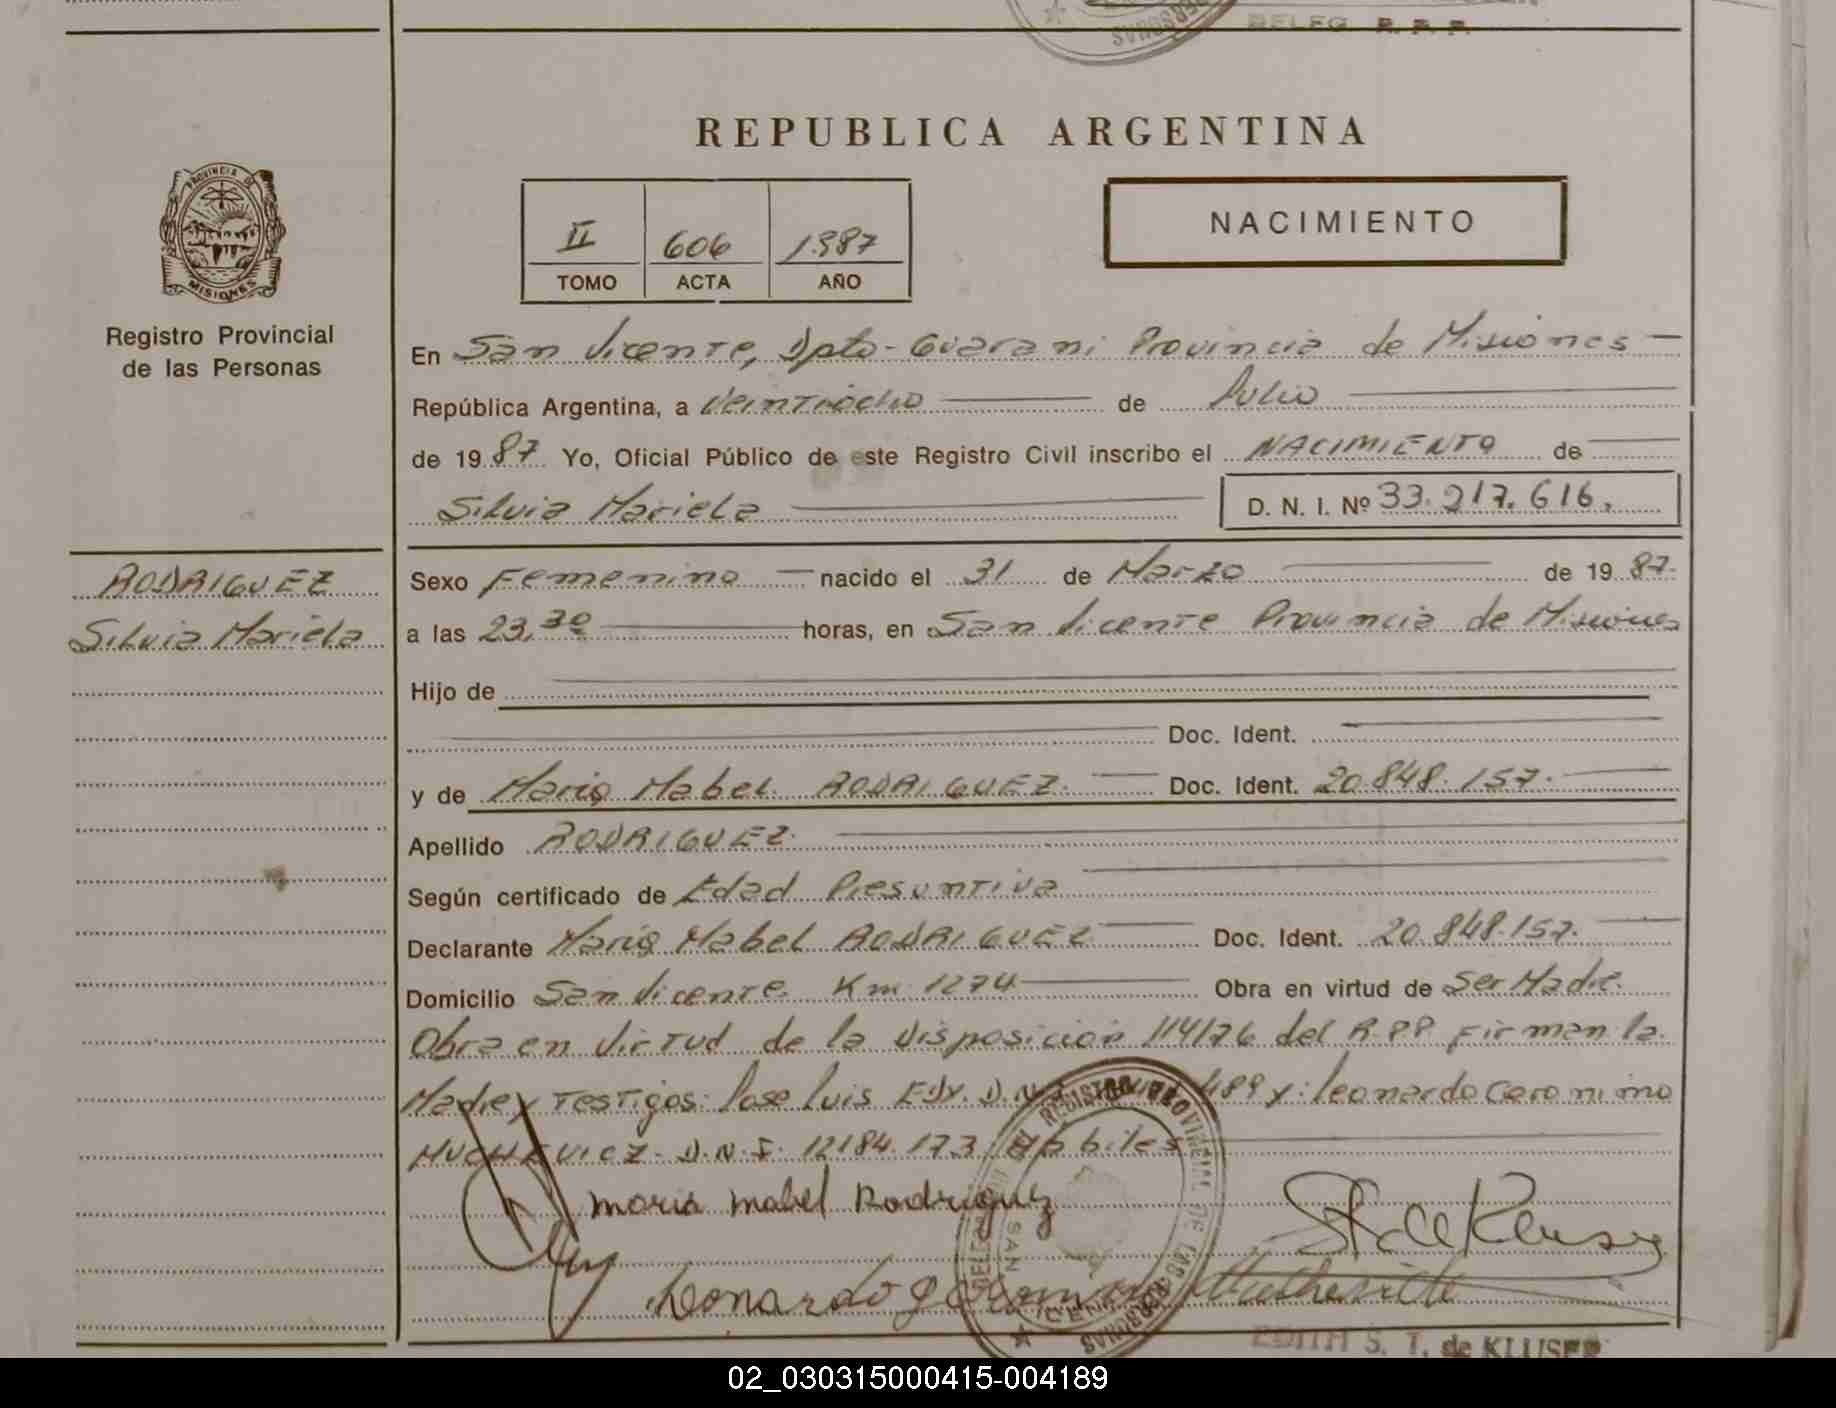 BELEG. R. P. P.
PERSONAS
REPUBLICA ARGENTINA
PROVINCIA DE
MISIONES
Registro Provincial
de las Personas
II 606 1.987
TOMO ACTA AÑO
NACIMIENTO
En San Vicente, Dpto-Guarani Provincia de Misiones
República Argentina, a Veintiocho de Julio
de 19 87 Yo, Oficial Público de este Registro Civil inscribo el NACIMIENTO de
Silvia Mariela D. N. I. Nº 33.217.616.
RODRIGUEZ
Silvia Mariela
Sexo Femenino nacido el 31 de Marzo de 19 87.
a las 23,30 horas, en San Vicente Provincia de Misiones
Hijo de
Doc. Ident.
y de Maria Mabel RODRIGUEZ. Doc. Ident. 20.848.157.
Apellido RODRIGUEZ.
Según certificado de Edad Presuntiva
Declarante Maria Mabel RODRIGUEZ Doc. Ident. 20.848.157.
Domicilio San Vicente Km 1274 Obra en virtud de Ser Madre.
Obra en Virtud de la Disposición 114/76 del R.P.P. Firman la
Madre y Testigos: Jose Luis EDY. D.N.I. 489 y: Leonardo Geronimo
D.N.I. 12184.173 Habiles
maria mabel Rodriguez
Leonardo
REGISTRO PROVINCIAL DE LAS PERSONAS
SAN
EDITH S. T. de KLUSER
02_030315000415-004189